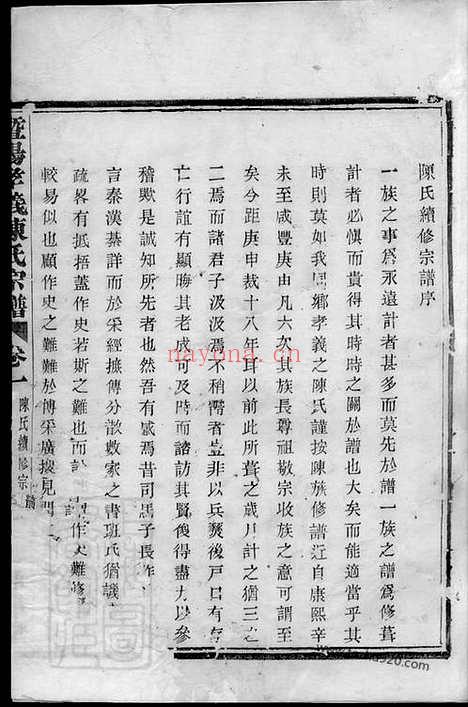 陳氏續修宗譜序
一族之事爲永遠計者甚多而莫先於譜一族之譜爲修葺
計者莫難而貴得其時時之關於譜也大矣而能適當乎其
時則莫如我同鄉孝義之陳氏謹按陳族修譜近自康熙辛
未至咸豐庚申凡六次其族長尊祖敬宗收族之意可謂至
矣今距庚申裁十八年耳以前此所葺之歲月計之猶三之
二焉而諸君子汲汲焉不稍需者豈非以兵燹後戶口有存
亡行誼有顯晦其老成可及時而諮訪其文賢俊得盡力以參
稽歟是誠知所先者也然有感焉昔司馬子長作
言秦漢綦詳而於采經摭傳分散數家之書班氏猶譏
疏畧有抵捂蓋作史若斯之難也而 作史難修
較易似也顧作史之難難於博采廣搜見聞
暨陽孝義陳氏宗譜 卷一 陳氏續修宗譜
nayona.cn
920.com